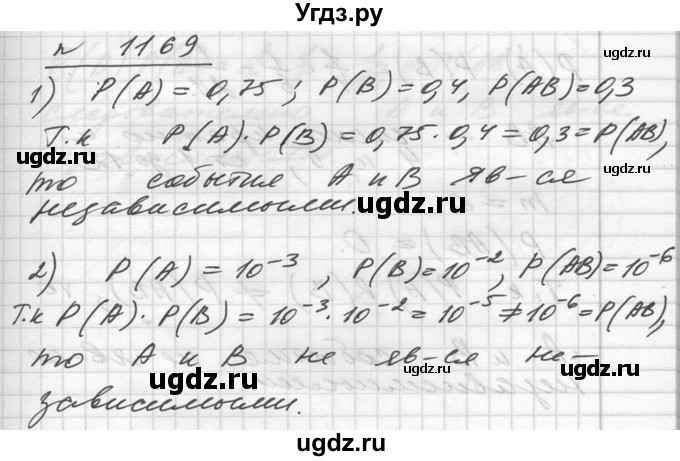 Угдз.ру
№ 1169
1) P(A) = 0,75 ; P(B) = 0,4, P(AB) = 0,3
Т.к P(A)·P(B) = 0,75·0,4 = 0,3 = P(AB),
то события А и В яв-ся
независимыми.
ugdz.ru
ugdz.ru
2) P(A) = 10⁻³, P(B) = 10⁻², P(AB) = 10⁻⁶
ugdz.ru
ugdz.ru
Т.к P(A)·P(B) = 10⁻³·10⁻² = 10⁻⁵ ≠ 10⁻⁶ = P(AB),
то А и В не яв-ся не-
ugdz.ru
ugdz.ru
зависимыми.
ugdz.ru